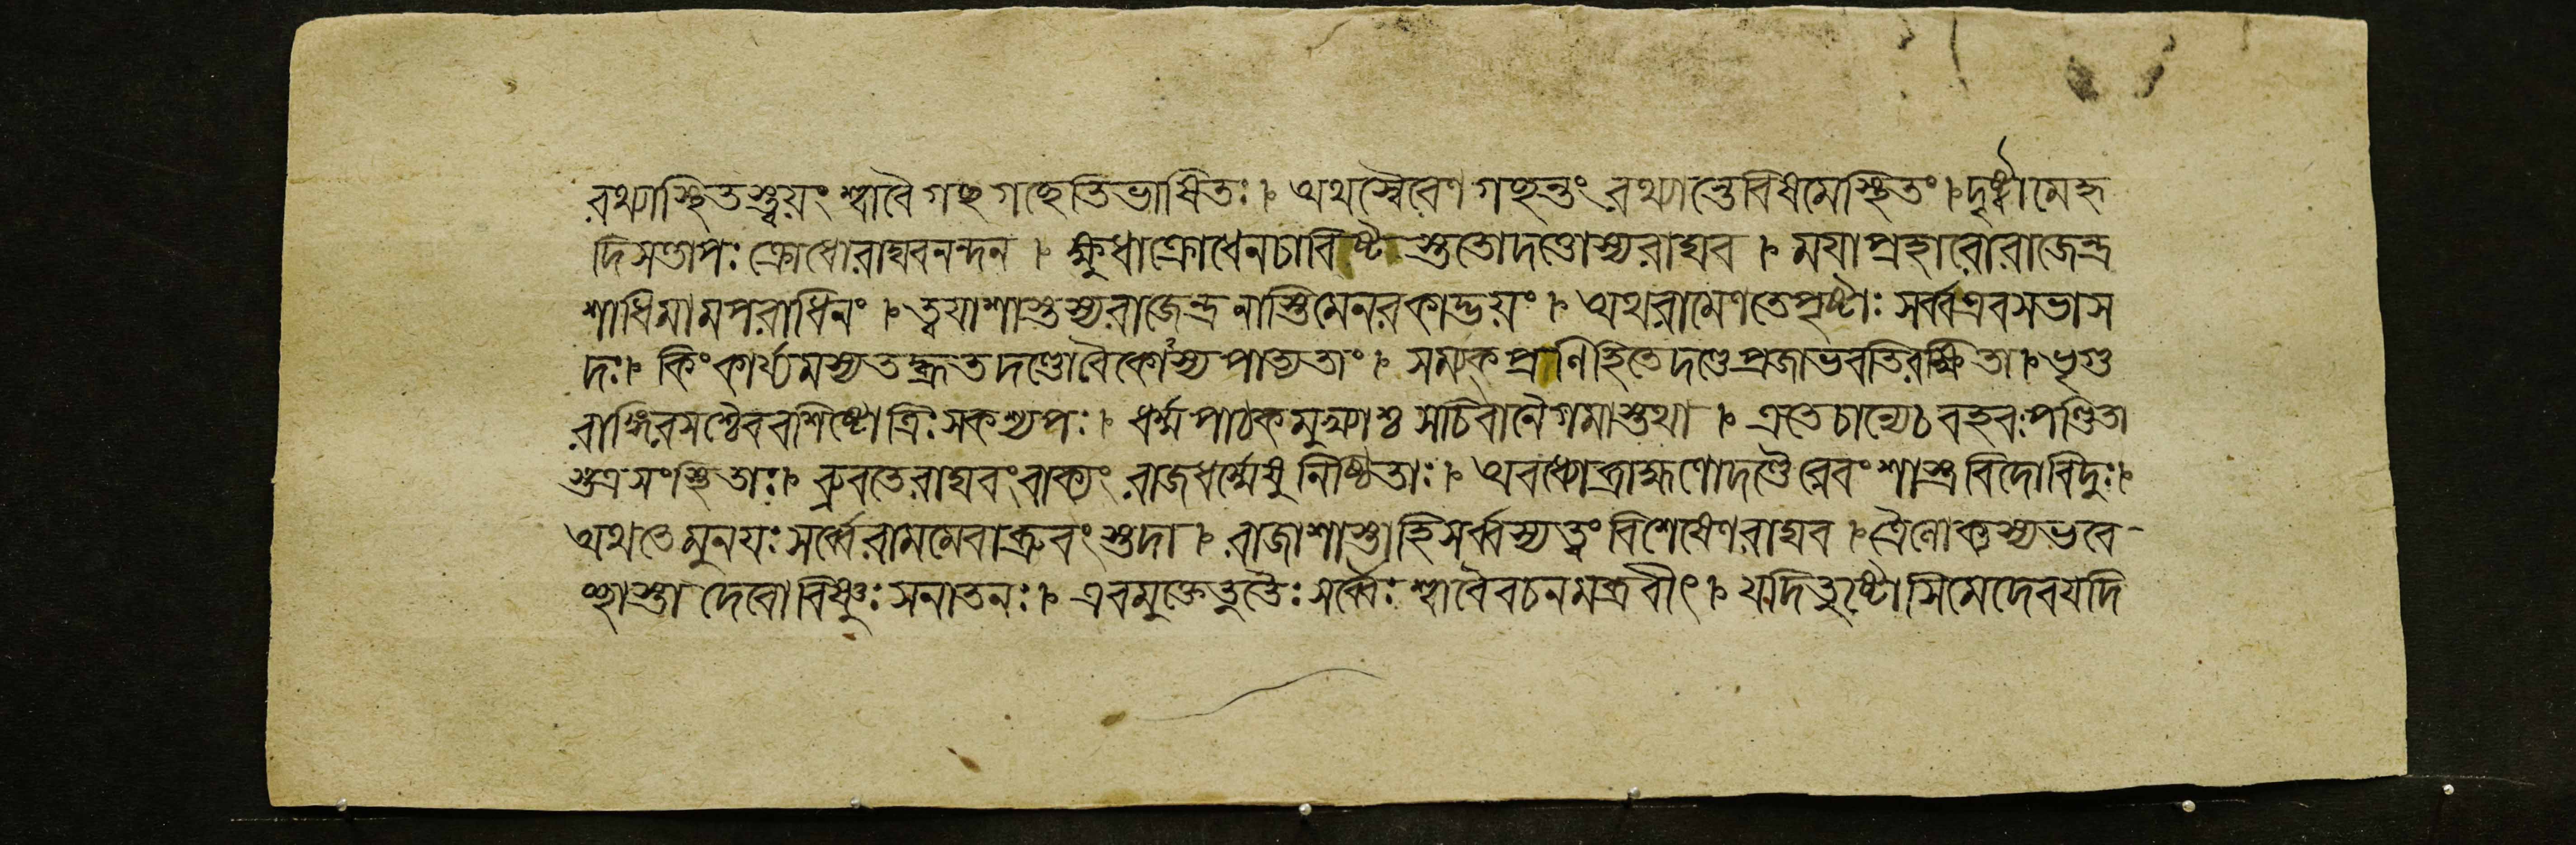 রথ্যাস্থিতস্ত্বয়ং শ্বাবৈ গচ্ছ গচ্ছেতিভাষিতঃ । অথস্বৈরেণ গচ্ছন্তং রথ্যান্তেবিষমেস্থিতং । দৃষ্ট্বামেহৃ
দিসন্তাপঃ ক্রোধোরাঘবনন্দন । ক্ষুধাক্রোধেনচাবিষ্ট স্ততোদণ্ডোস্যরাঘব । ময়াপ্রহারোরাজেন্দ্র
শাধিমামপরাধিনং । ত্বয়াশাস্তস্যরাজেন্দ্র নাস্তিমেনরকাদ্ভয়ং । অথরামেণতেপৃষ্টাঃ সর্ব্বএবসভাস
দঃ । কিং কার্য্যমস্যতদ্ব্রূত দণ্ডোবৈকোস্য পাত্যতাং । সম্যক্ প্রণিহিতে দণ্ডেপ্রজাভবতিরক্ষিতা । ভৃগু
রাঙ্গিরসশ্চৈববশিষ্ঠোত্রিঃ সকশ্যপঃ । ধর্ম্মপাঠকমুখ্যাশ্চ সচিবানৈগমাস্তথা । এতেচান্যেচ বহবঃ পণ্ডিতা
স্তত্রসংস্থিতাঃ । ব্রুবতেরাঘবং বাক্যং রাজধর্ম্মেষু নিষ্ঠিতাঃ । অবধ্যোব্রাহ্মণোদণ্ডৈরেবং শাস্ত্রবিদোবিদুঃ ।
অথতেমুনয়ঃ সর্ব্বেরামমেবাব্রুবংস্তদা । রাজাশাস্তাহিসর্ব্বস্যত্বং বিশেষেণরাঘব । ত্রৈলোক্যস্যভবে-
চ্ছাস্তা দেবোবিষ্ণুঃ সনাতনঃ । এবমুক্তেতুতৈঃ সর্ব্বৈঃ শ্বাবৈবচনমব্রবীৎ । যদিতুষ্টোসিমেদেবযদি